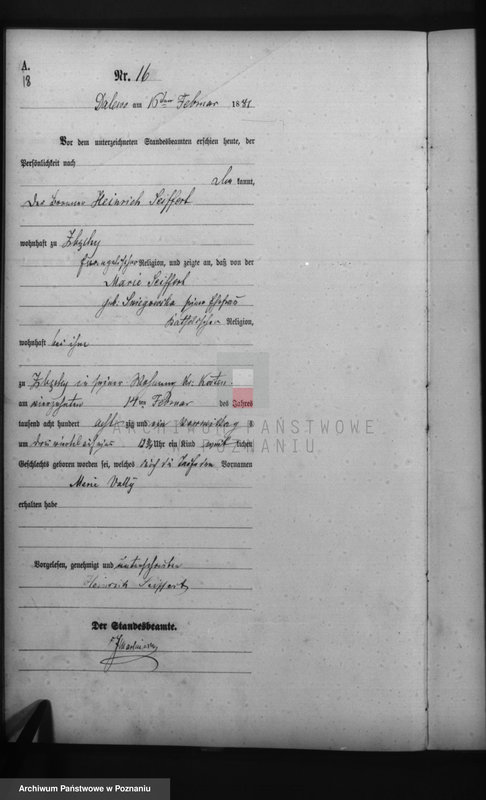 A.
18
Nr. 16
Dalewo am 15ten Februar 1881
Vor dem unterzeichneten Standesbeamten erschien heute, der
Persönlichkeit nach
kannt,
Der Brenner Heinrich Seiffert
wohnhaft zu Zbęchy
Evangelischer Religion, und zeigte an, daß von der
Marie Seiffert
geb. seiner Ehefrau
Katholischer Religion,
wohnhaft bei ihm
zu Zbęchy in seiner Wohnung Kr. Kosten
am vierzehnten 14ten Februar des Jahres
tausend acht hundert achtzig und ein Vormittag s
um drei viertel auf Uhr ein Kind weiblichen
Geschlechts geboren worden sei, welches Vornamen
Marie Vally
erhalten habe
Vorgelesen, genehmigt und unterschrieben
Heinrich Seiffert
Der Standesbeamte.
ARCHIWUM PAŃSTWOWE
W POZNANIU
Archiwum Państwowe w Poznaniu